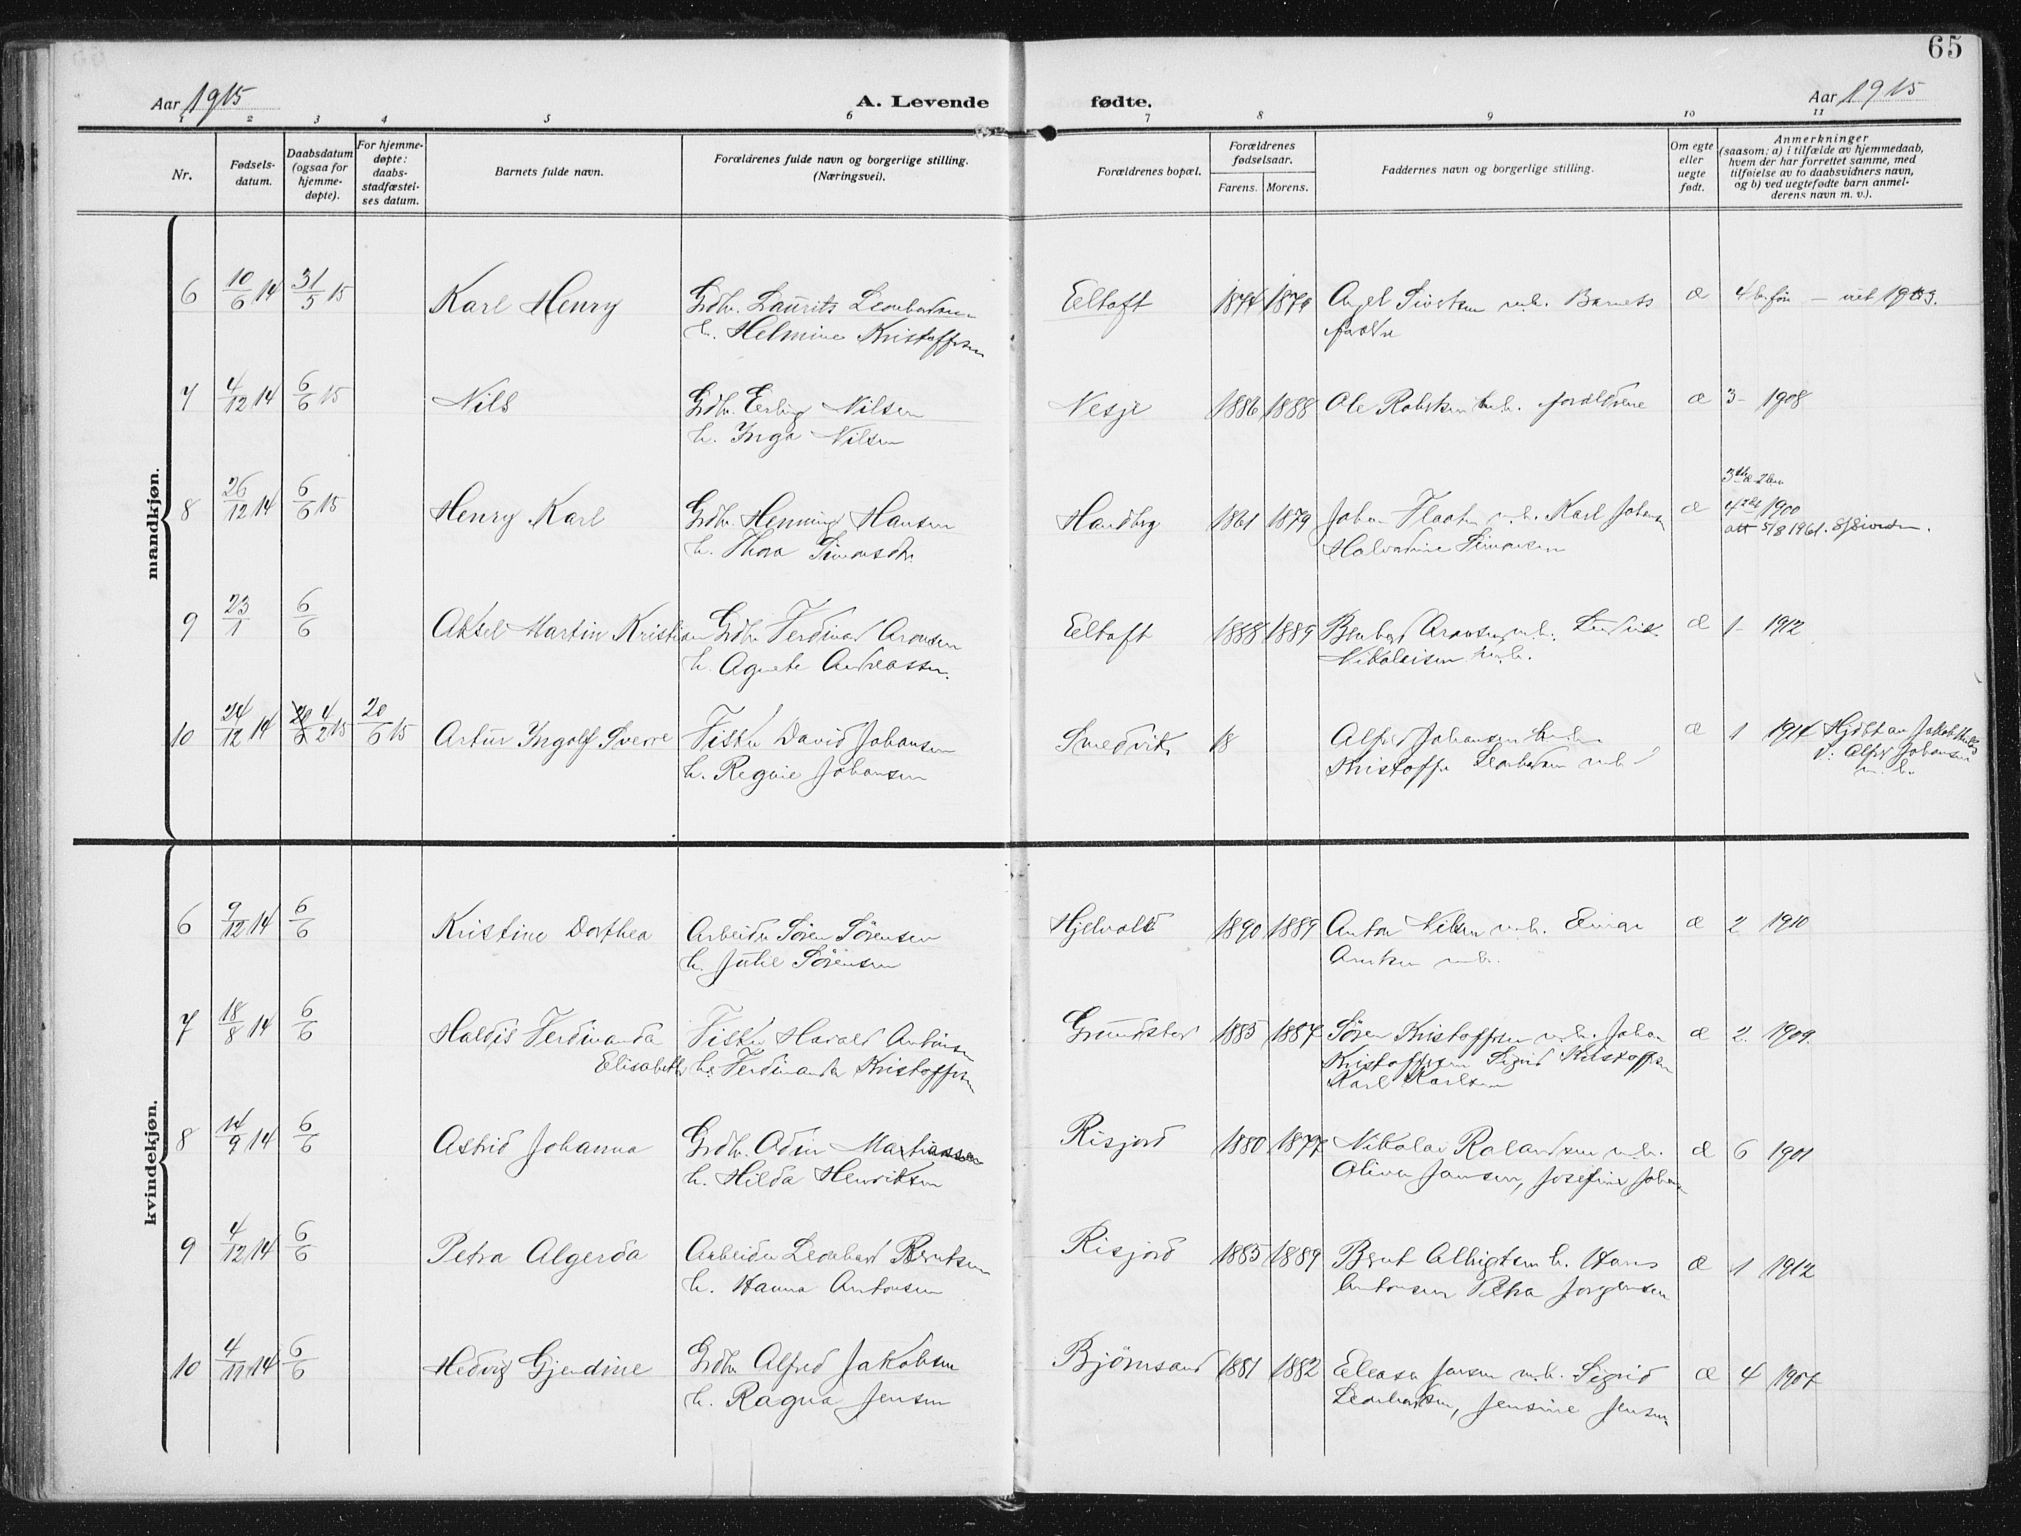 65
Aar 1915
A. Levende fødte.
Aar 1915
1 2 3 4 5 6 7 8 9 10 11
Nr.
Fødsels-
datum.
Daabsdatum
(ogsaa for
hjemme-
døpte).
For hjemme-
døpte:
daabs-
stadfæstel-
ses datum.
Barnets fulde navn.
Forældrenes fulde navn og borgerlige stilling.
(Næringsvei).
Forældrenes bopæl.
Forældrenes
fødselsaar.
Farens. Morens.
Faddernes navn og borgerlige stilling.
Om egte
eller
uegte
født.
Anmerkninger
(saasom: a) i tilfælde av hjemmedaab,
hvem der har forrettet samme, med
tilføielse av to daabsvidners navn,
og b) ved uegtefødte barn anmel-
derens navn m. v.).
mandkjøn.
6 10/6 14 31/5 15 Karl Henry Grdbr. Laurits Leonhardsen Eltoft 1874 1879 Angel Sivertsen m.h. Barnets æ
h. Helmine Kristoffersen forældre
7 4/12 14 6/6 15 Nils Grdbr. Erling Nilsen Nesje 1886 1888 Ole m.h. forældrene æ 3 - 1908
h. Inga Nilsen
8 26/12 14 6/6 15 Henry Karl Grdbr. Henning Hansen Handberg 1861 1879 Johan m.h. Karl Johansen æ 1900
h. Thora Simonsdtr. Simonsen 5/8 1961.
9 23/1 6/6 Aksel Martin Kristian Grdbr Ferdinad Aronsen Eltoft 1888 1889 Aronsen m.h. æ 1 - 1912
h. Agnete Andreassen. Nikolaisen m.h.
10 24/12 14 4/2 15 20/6 15 Artur Ingolf Sverre Fisker David Johansen Smedvik 18 Alfred Johansen æ 1 1914 Hjdbt av
h. Regine Johansen Kristoffer Leonhardsen m.h. Alfred Johansen
m.h.
kvindekjøn.
6 9/12 14 6/6 Kristine Dorthea Arbeider Søren Sørensen Hjelvold 1890 1889 Anton Nilsen m.h. æ 2 1910
h. Julie Sørensen m.h.
7 18/8 14 6/6 Haldis Ferdinanda Fisker Harald Antonsen Grundstad 1885 1887 Søren Kristoffersen m.h. Johan æ 2. 1909.
Elisabeth h. Ferdinanda Kristoffersen Kristoffersen Sigrid Kristoffersen
Karl Karlsen
8 14/9 14 6/6 Astrid Johanna Grdbr. Odin Martinssen Risjord 1880 1877 Nikolai Rolandsen m.h. æ 6 1901
h. Hilda Henriksen Oliver Jansen, Josefine Johansen
9 4/12 14 6/6 Petra Algerda Arbeider Leonhard Berntsen Risjord 1885 1889 Bernt h. Hans æ 1 1912
h. Hanna Antonsen Antonsen Petra Jørgensen
10 4/11 14 6/6 Hedvig Gjendine Grdbr Alfred Jakobsen Bjørnsand 1881 1882 Eleasar Jensen m.h. Sigrid æ 4 1907
h. Ragna Jensen Leonhardsen, Jensine Jensen